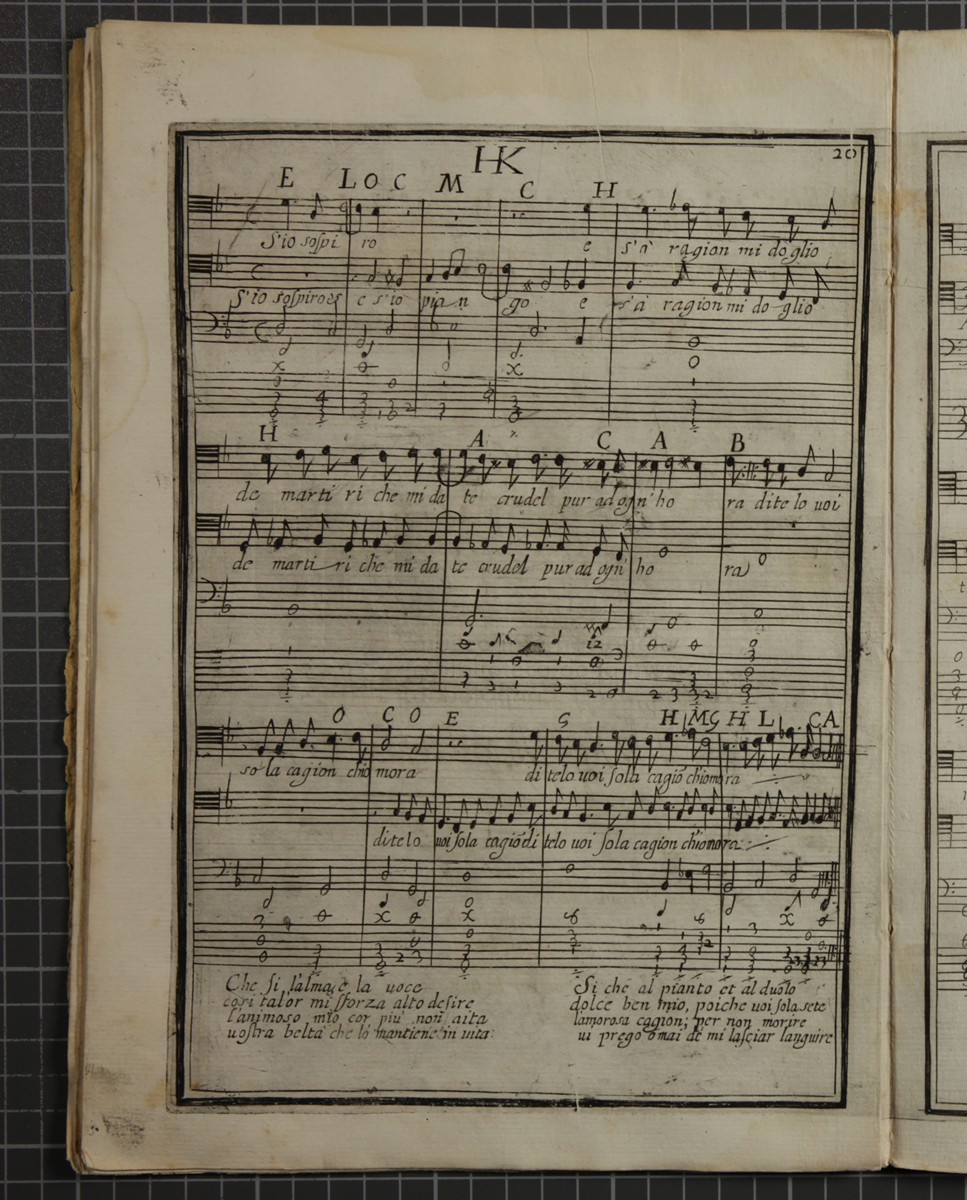 HK
20
E L O C M C H
S'io soſpi ro e s'à ragion mi doglio
S'io soſpiro e s'io pian go e s'à ragion mi do glio
H A C A B
de marti ri che mi da te crudel pur ad ogn' ho ra dite lo uoi
de marti ri che mi da te crudel pur ad ogn' ho ra
O C O E G H M G H L C A
so la cagion chio mora di telo uoi ſolla cagiō chiomora
ditelo uoi ſola cagiō di telo uoi ſola cagion chiomora
Che ſi l'alma, e la uoce
cori talor mi ſforza alto deſire
l'animoso mio cor più non aita
uoſtra beltà che lo mantiene in uita
Si che al pianto et al duolo
dolce ben mio, poiche uoi ſola sete
lamorosa cagion, per non morire
ui prego omai de mi laſciar languire